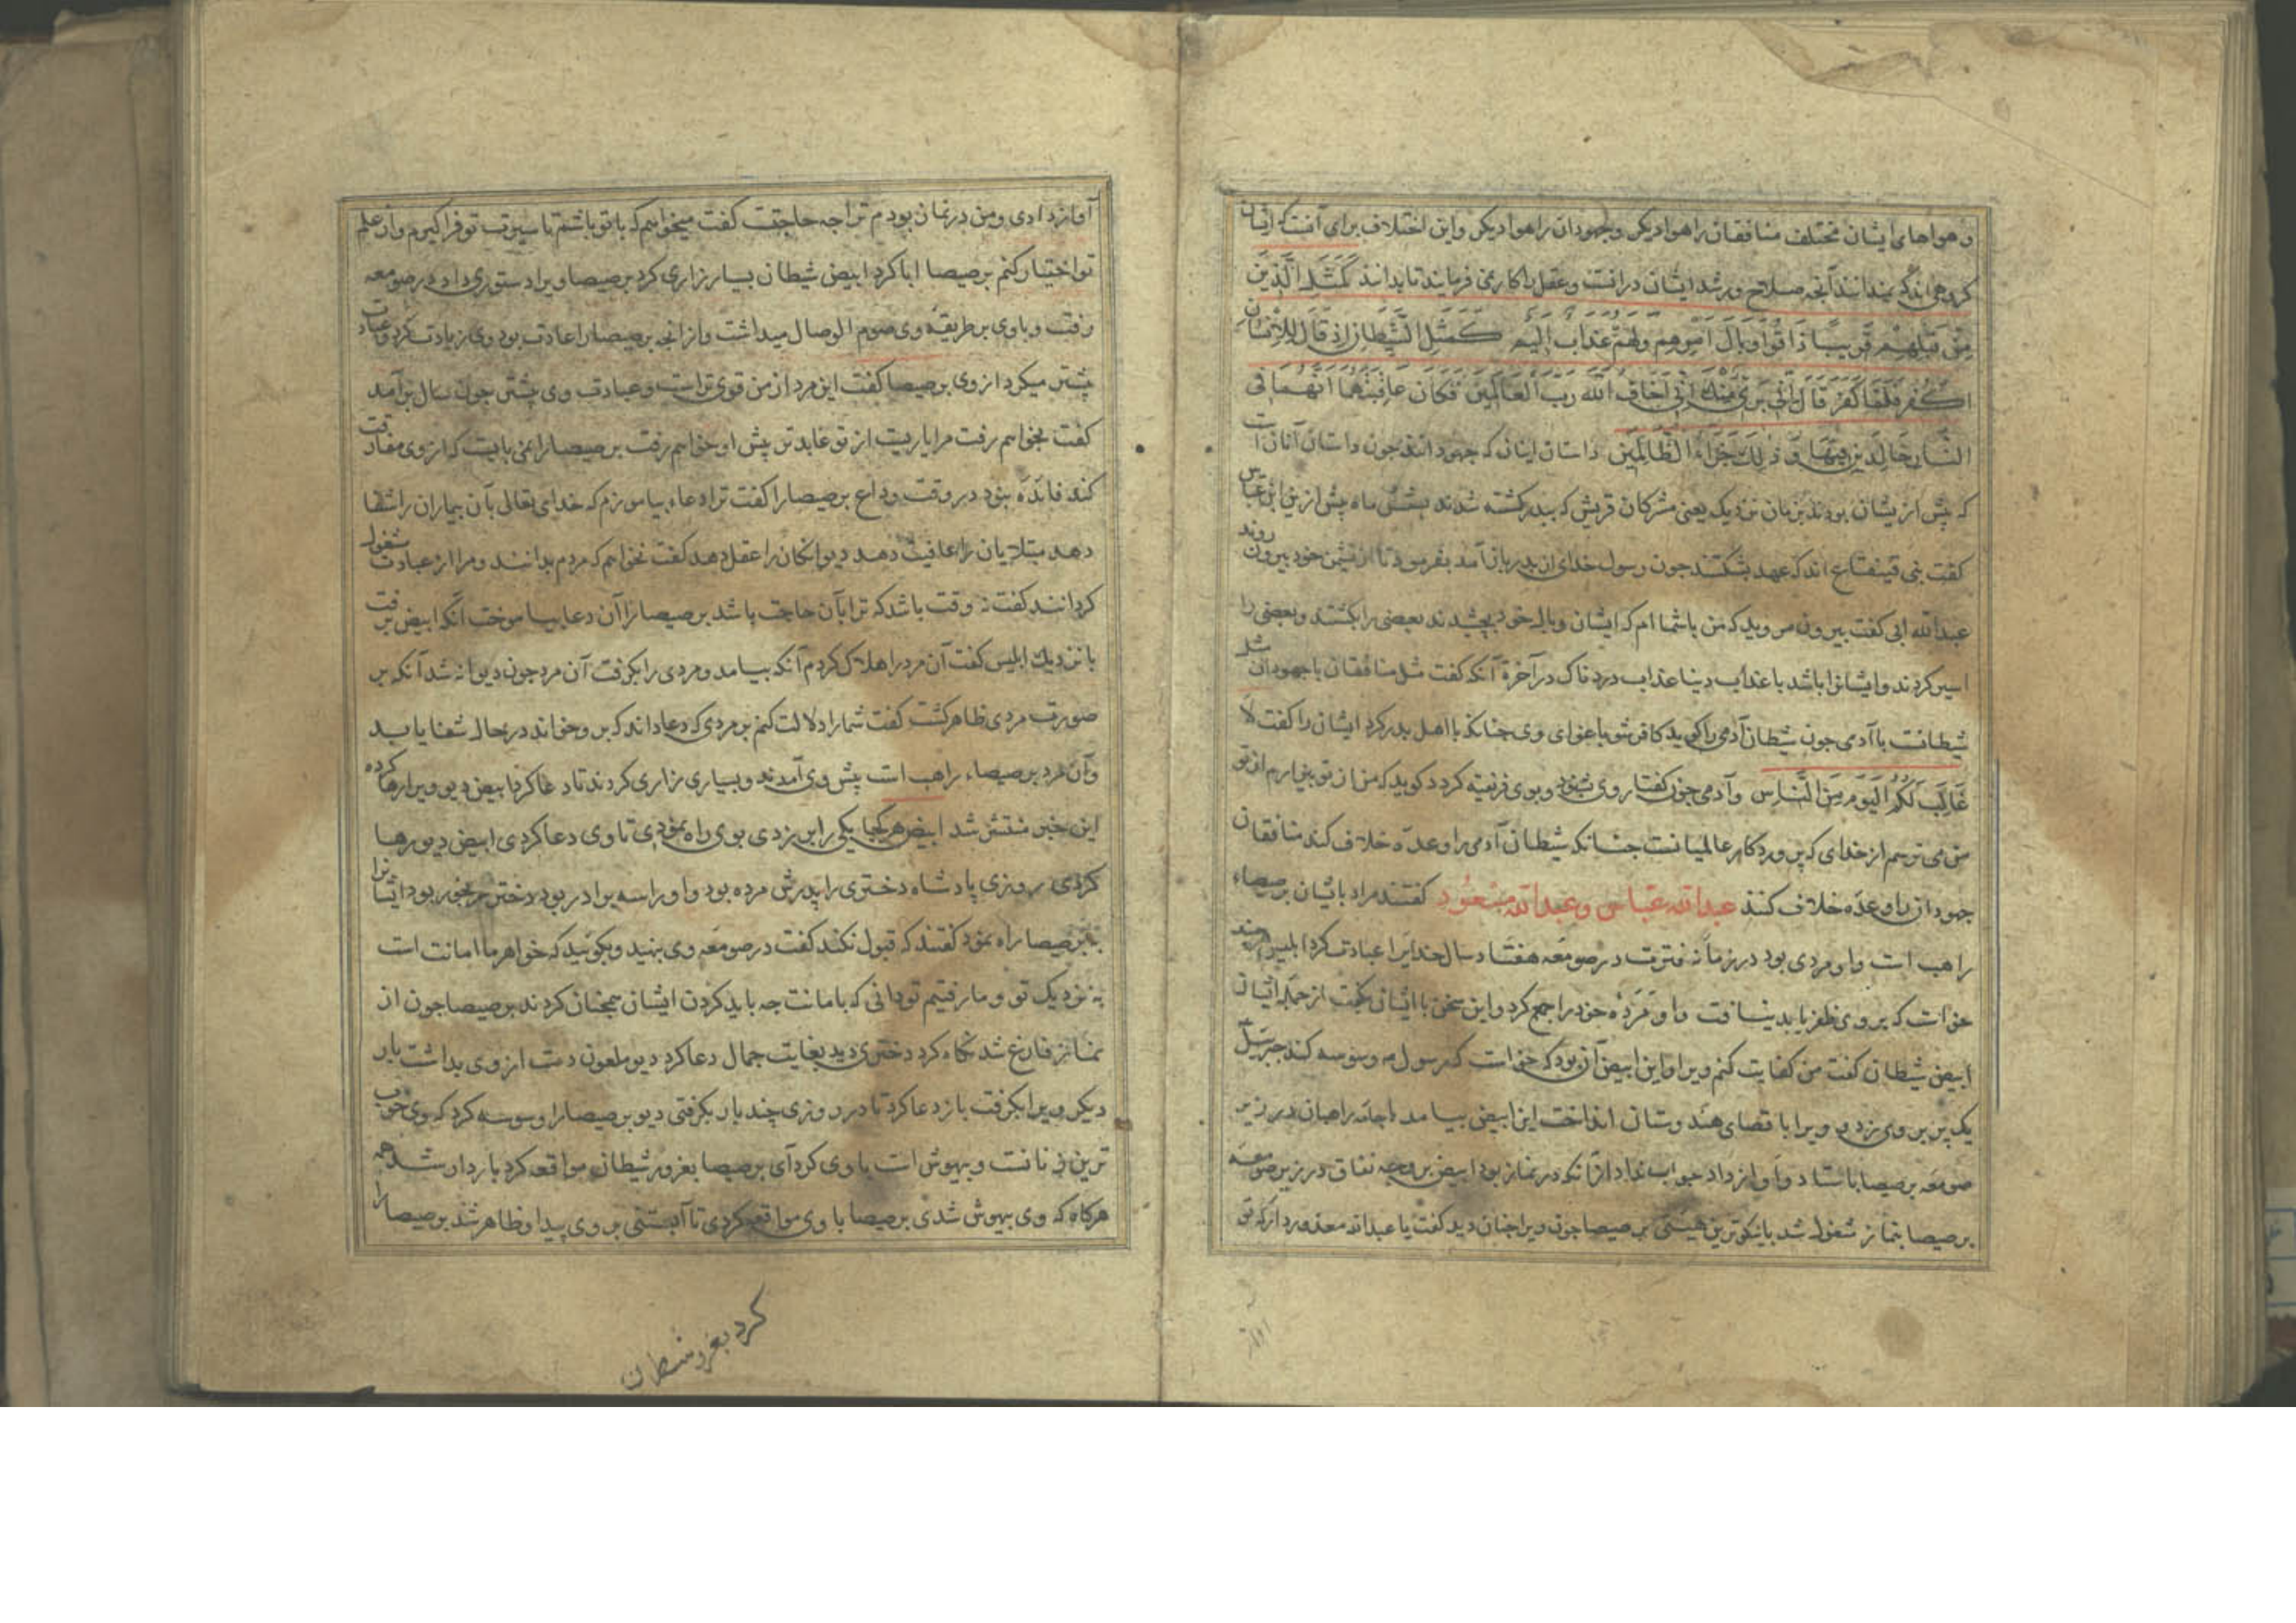 و هواهای ایشان مختلف منافقان را هوا دیکر و جهودان را هوا دیکر و این اختلاف برای آنست که ایشان
کروهی‌اند که ندانند آنچه صلاح و رشد ایشان در انست و عقل را کار نمی فرمایند تا بدانند كَمَثَلِ الَّذِينَ
مِنْ قَبْلِهِمْ قَرِيبًا ذَاقُوا وَبَالَ أَمْرِهِمْ وَلَهُمْ عَذَابٌ أَلِيمٌ كَمَثَلِ الشَّيْطَانِ إِذْ قَالَ لِلْإِنْسَانِ
اكْفُرْ فَلَمَّا كَفَرَ قَالَ إِنِّي بَرِيءٌ مِنْكَ إِنِّي أَخَافُ اللَّهَ رَبَّ الْعَالَمِينَ فَكَانَ عَاقِبَتَهُمَا أَنَّهُمَا فِي
النَّارِ خَالِدَيْنِ فِيهَا وَذَلِكَ جَزَاءُ الظَّالِمِينَ داستان اینان که جهودانند جون داستان آنان است
که پیش از یشان بودند بزمان نزدیک یعنی مشرکان قریش که ببدر کشته شدند بشش ماه پیش ازین ابن عباس
کفت بنی قینقاع اند که عهد بشکستند جون رسول خدای از بدر باز آمد بفرمود تا از نشیمن خود بیرون روند
عبدالله ابی کفت بیرون مروید که من با شما ام که ایشان وبال خود بچشیدند بعضی را بکشتند و بعضی را
اسیر کردند و ایشانرا باشد با عذاب دنیا عذاب دردناک در آخرة آنکه کفت مثل منافقان با جهودان مثل
شیطانست با آدمی جون شیطان آدمی را کوید کافر شو باغوای وی جنانکه با اهل بدر کرد ایشان را کفت لا
غَالِبَ لَكُمُ الْيَوْمَ مِنَ النَّاسِ و آدمی جون کفتار وی بشنود و بوی فریفته کردد کوید که من از تو بیزارم از تو
من می ترسم از خدای که پروردکار عالمیانست جنانکه شیطان آدمی را وعده خلاف کند منافقان
جهودان را وعده خلاف کنند عبدالله عباس و عبدالله مسعود کفتند مراد باشان برصیصاء
راهب است و او مردی بود در زمانه فترت در صومعه هفتاد سال خدایرا عبادت کرد ابلیس هرچند
خواست که بر وی ظفر یابد نیافت و او مَرَدَه خود را جمع کرد و این سخن با ایشان بکفت از جمله ایشان
ابیض شیطان کفت من کفایت کنم ویرا و این ابیض آن بود که خواست که رسول مه وسوسه کند جبرئیل
یک پر بر وی زد و ویرا باقصای هندوستان انداخت این ابیض بیامد با جامه راهبان در زیر
صومعه برصیصا باستاد و آواز داد جواب نداد ازانکه در نماز بود ابیض بر وجه نفاق در زیر صومعه
برصیصا بنماز مشغول شد بانیکوترین هیئتی برصیصا جون ویرا جنان دید کفت یا عبدالله معذور دار که تو
آواز دادی و من در نمان بودم ترا جه حاجتست کفت میخواهم که با تو باشم تا سیرت تو فرا کیرم و از علم
تو اختیار کنم برصیصا ابا کرد ابیض شیطان بسیار زاری کرد برصیصا ویرا دستوری داد در صومعه
رفت و با وی بر طریقه وی صوم الوصال میداشت و از انجه برصیصا را عادت بود وی زیادت کرد و عبادت
بیشتر میکرد از وی برصیصا کفت این مرد از من قوی تراست و عبادت وی بیشتر جون سال برآمد
کفت بخواهم رفت مرا یاریست از تو عابدتر پیش او خواهم رفت برصیصا را نمی بایست که از وی مفارقت
کند فائده نبود در وقت وداع برصیصا را کفت ترا دعاء بیاموزم که خدای تعالی بآن بیماران را شفا
دهد مبتلایان را عافیت دهد دیوانکان را عقل دهد کفت نخواهم که مردم بدانند و مرا از عبادت مشغول
کردانند کفت نه وقت باشد که ترا بآن حاجت باشد برصیصا را آن دعا بیاموخت آنکه ابیض برفت
با نزدیک ابلیس کفت آن مرد را هلاک کردم آنکه بیامد و مردی را بکرفت آن مرد جون دیوانه شد آنکه بر
صورت مردی ظاهر کشت کفت شما را دلالت کنم بر مردی که دعا داند که بر و خواند در حال شفا یابد
و آن مرد برصیصاء راهب است پیش وی آمدند و بسیاری زاری کردند تا دعا کرد ابیض دیو ویرا رها کرده
این خبر منتشر شد ابیض هر کجا یکی را بر زدی بوی راه نمودی تا وی دعا کردی ابیض دیو رها
کردی روزی پادشاه دختری را پدرش مرده بود و او را سه برادر بود دختر رنجور بود ایشانرا
به برصیصا راه نمود کفتند که قبول نکند کفت در صومعه وی بنهید و بکوئید که خواهر ما امانت است
به نزدیک تو و ما رفتیم تو دانی که با مانت جه باید کردن ایشان همچنان کردند برصیصا جون از
نماز فارغ شد نکاه کرد دختری دید بغایت جمال دعا کرد دیو ملعون دست از وی بداشت بار
دیکر ویرا بکرفت باز دعا کرد تا در روزی چند بار بکرفتی دیو برصیصا را وسوسه کرد که وی خوب
ترین زنانست و بیهوش است با وی کرد آی برصیصا بغرور شیطان مواقعه کرد باردار شد همه
هرکاه که وی بیهوش شدی برصیصا با وی مواقعه کردی تا آبستنی بر وی پیدا و ظاهر شد برصیصا را
کرد بغرور شیطان